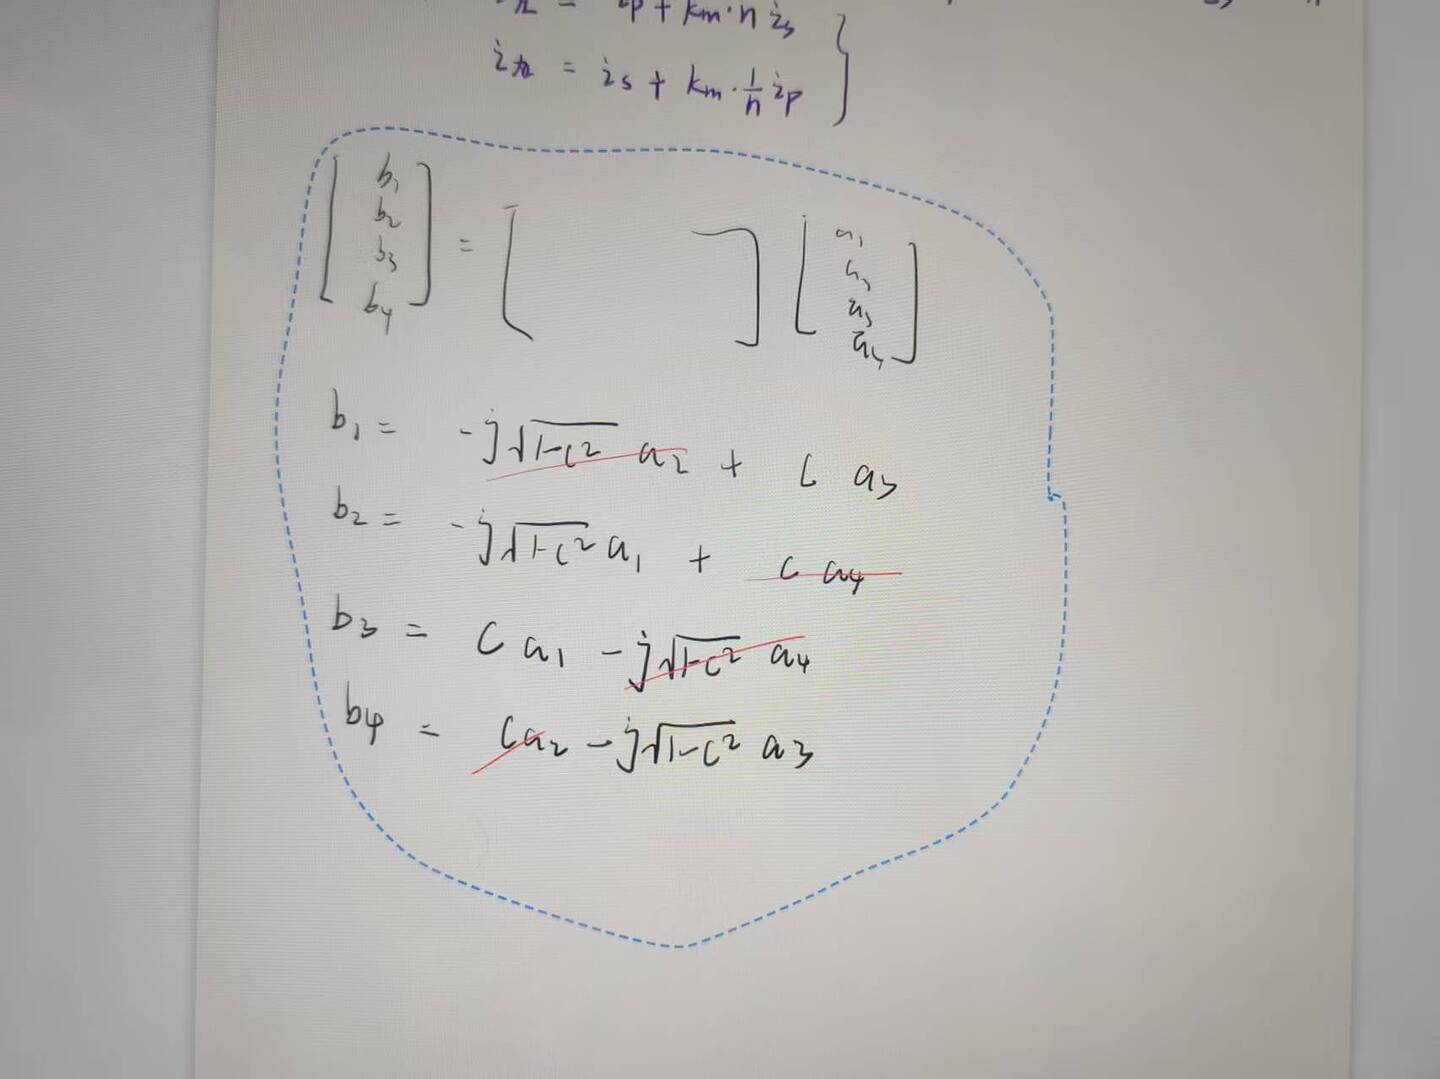 = ip + km·n is
= is + km·1/n ip
[b1 b2 b3 b4] = [ ] [a1 a2 a3 a4]
b1 = -j√1-c² a2 + c a3
b2 = -j√1-c² a1 + c a4
b3 = c a1 - j√1-c² a4
b4 = ca2 - j√1-c² a3